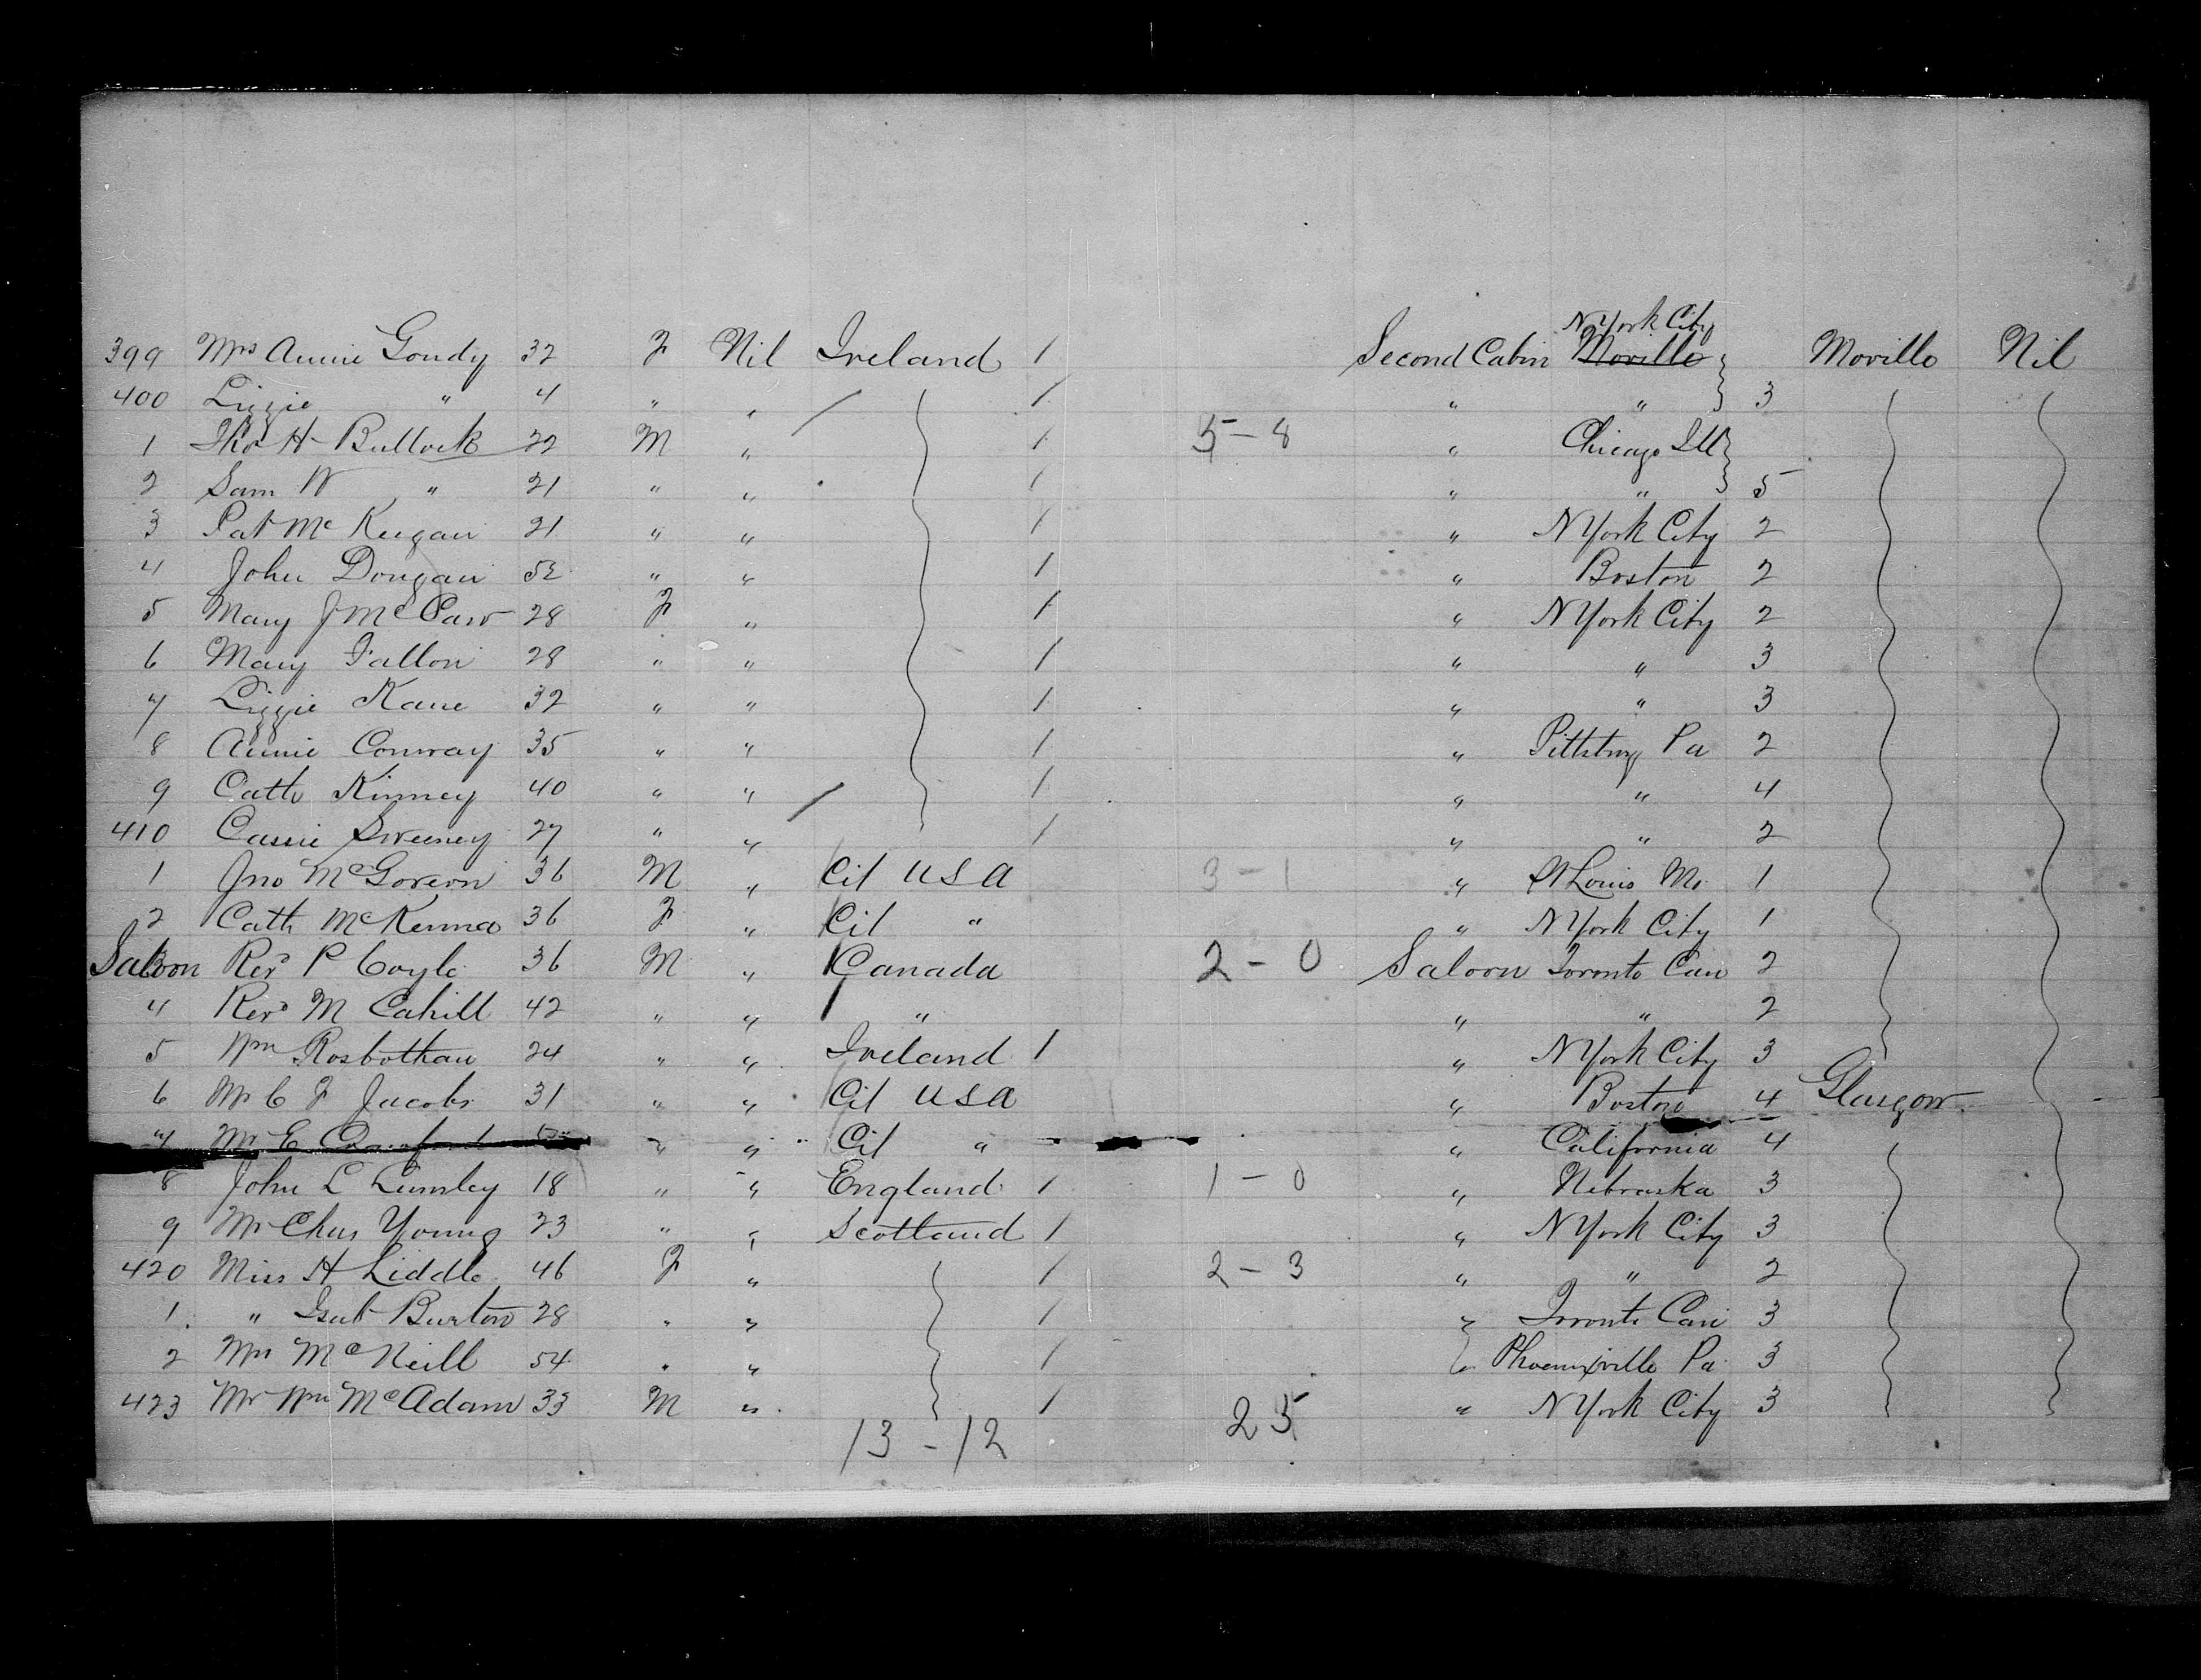 N York City
399 Mrs Annie Goudy 32 F Nil Ireland 1 Second Cabin Moville Moville Nil
400 Lizzie " 4 " " 1 " " 3
1 Tho H Bullock 22 M " 1 5-8 " Chicago Ill
2 Sam W " 21 " " 1 " " 5
3 Pat Mc Keegan 21 " " 1 " N York City 2
4 John Dougan 52 " " 1 " Boston 2
5 Mary J Mc Paw 28 F " 1 " N York City 2
6 Mary Fallon 28 " " 1 " " 3
7 Lizzie Kane 32 " " 1 " " 3
8 Annie Conway 35 " " 1 " Pittsburg Pa 2
9 Cath Kinney 40 " " 1 " " 4
410 Cassie Sweeney 27 " " 1 " " 2
1 Jno McGovern 36 M " Cit USA 3-1 " St Louis Mo 1
2 Cath McKenna 36 F " Cit " " N York City 1
Saloon Revd P Coyle 36 M " Canada 2-0 Saloon Toronto Can 2
4 Revd M Cahill 42 " " " " " 2
5 Wm Rosbothan 24 " " Ireland 1 " N York City 3
6 Mr C F Jacobs 31 " " Cit USA " Boston 4 Glasgow
7 Mr E Crawford " " Cit " " California 4
8 John L Lumley 18 " " England 1 1-0 " Nebraska 3
9 Mr Chas Young 23 " " Scotland 1 " N York City 3
420 Miss H Liddle 46 F " 1 2-3 " " 2
1 " Burton 28 " " 1 " Toronto Can 3
2 Mrs McNeill 54 " " 1 " Phoenixville Pa 3
423 Mr Wm McAdam 33 M " 1 " N York City 3
13-12 25